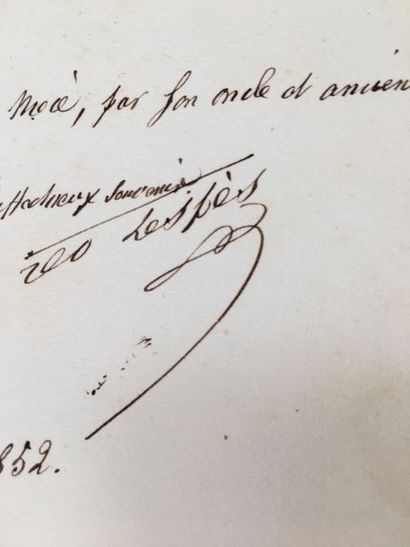 Nièce, par son oncle et ancien
affectueux souvenir
Léo Lespès
852.